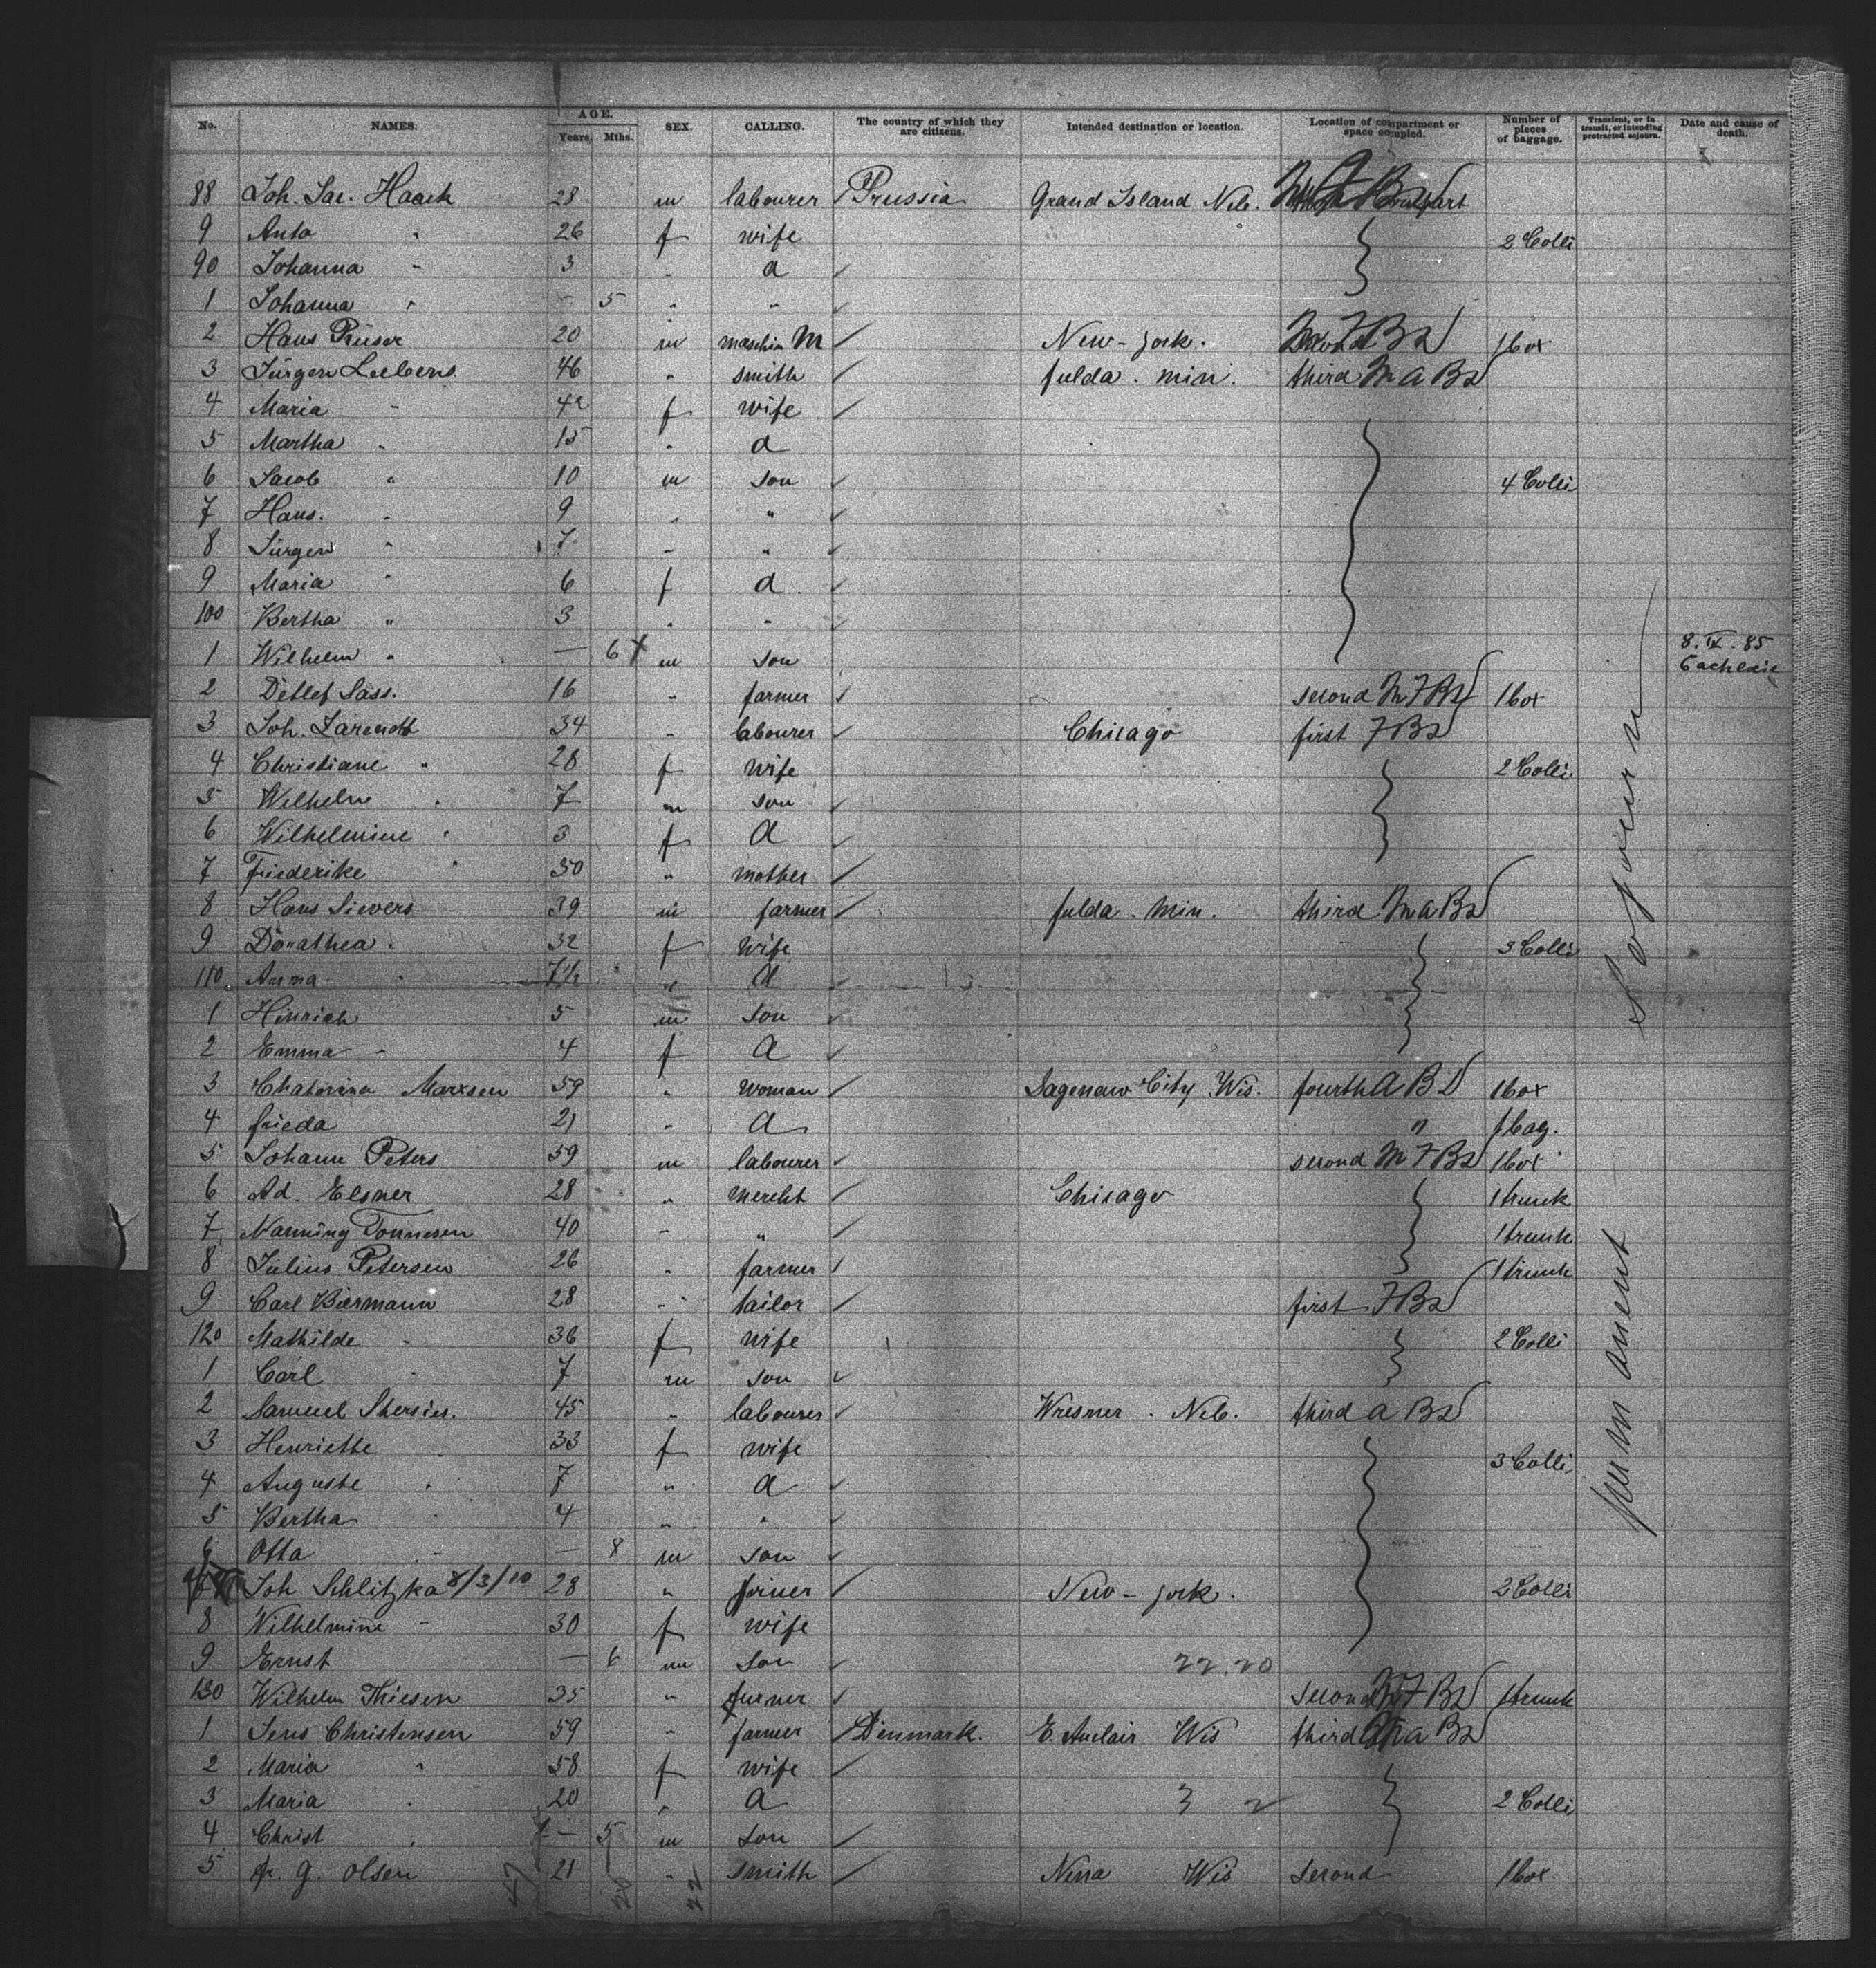 No. NAMES. AGE. Years. Mths. SEX. CALLING. The country of which they are citizens. Intended destination or location. Location of compartment or space occupied. Number of pieces of baggage. Transient, or in transit, or intending protracted sojourn. Date and cause of death.
88 Joh. Jac. Haack 28 m labourer Prussia Grand Island Neb.
9 " 26 f wife 2 Colli
90 Johanna " 3 " d
1 Johanna " — 5 " "
2 Hans Prüser 20 m maschin M New-york. 1 box
3 Jürgen Luebens 46 " smith fulda. min. third M a Bs
4 Maria " 42 f wife
5 Martha " 15 " d
6 Jacob " 10 m son 4 Colli
7 Hans. " 9 " "
8 Jürgen " 7 " "
9 Maria " 6 f d
100 Bertha " 3 " "
1 Wilhelm " — 6 m son 8. IX. 85 Cachexie
2 Detlef Sass. 16 " farmer second M F Bs 1 box
3 Joh. Zarendt 34 " labourer Chicago first F Bs
4 Christiane " 28 f wife 2 Colli
5 Wilhelm " 7 m son
6 Wilhelmine " 3 f d
7 Friederike " 50 " mother
8 Hans Sievers 39 m farmer fulda. Min. third M a Bs
9 Dorathea " 32 f wife 3 Colli
110 Anna " 7½ " d
1 Hinrich 5 m son
2 Emma " 4 f d
3 Chatarina Marxsen 59 " woman Sagenaw City Wis. fourth a Bs 1 box
4 frieda 21 " d " 1 bag.
5 Johann Peters 59 m labourer second M F Bs 1 box
6 Ad. Elsner 28 " mercht Chicago 1 trunk
7 Nanning Tonnesen 40 " " 1 trunk
8 Julius Petersen 26 " farmer 1 trunk
9 Carl Biermann 28 " tailor first F Bs
120 Mathilde " 36 f wife 2 Colli
1 Carl " 7 m son
2 Samuel 45 " labourer Neb. third a Bs
3 Henriette 33 f wife 3 Colli
4 Auguste " 7 " d
5 Bertha " 4 " "
6 Otto " — 8 m son
Joh Schlitzka 8/3/10 28 " joiner New-york. 2 Colli
8 Wilhelmine " 30 f wife
9 Ernst — 6 m son 22.20
130 Wilhelm Thiesen 35 " turner second M F Bs 1 trunk
1 Jens Christensen 59 " farmer Denmark. E. Auclair Wis third M a Bs
2 Maria " 58 f wife
3 Maria " 20 " d 3 2 2 Colli
4 Christ " — 5 m son
5 G. Olsen 21 " smith Wis second 1 box
Sojourn
permanent